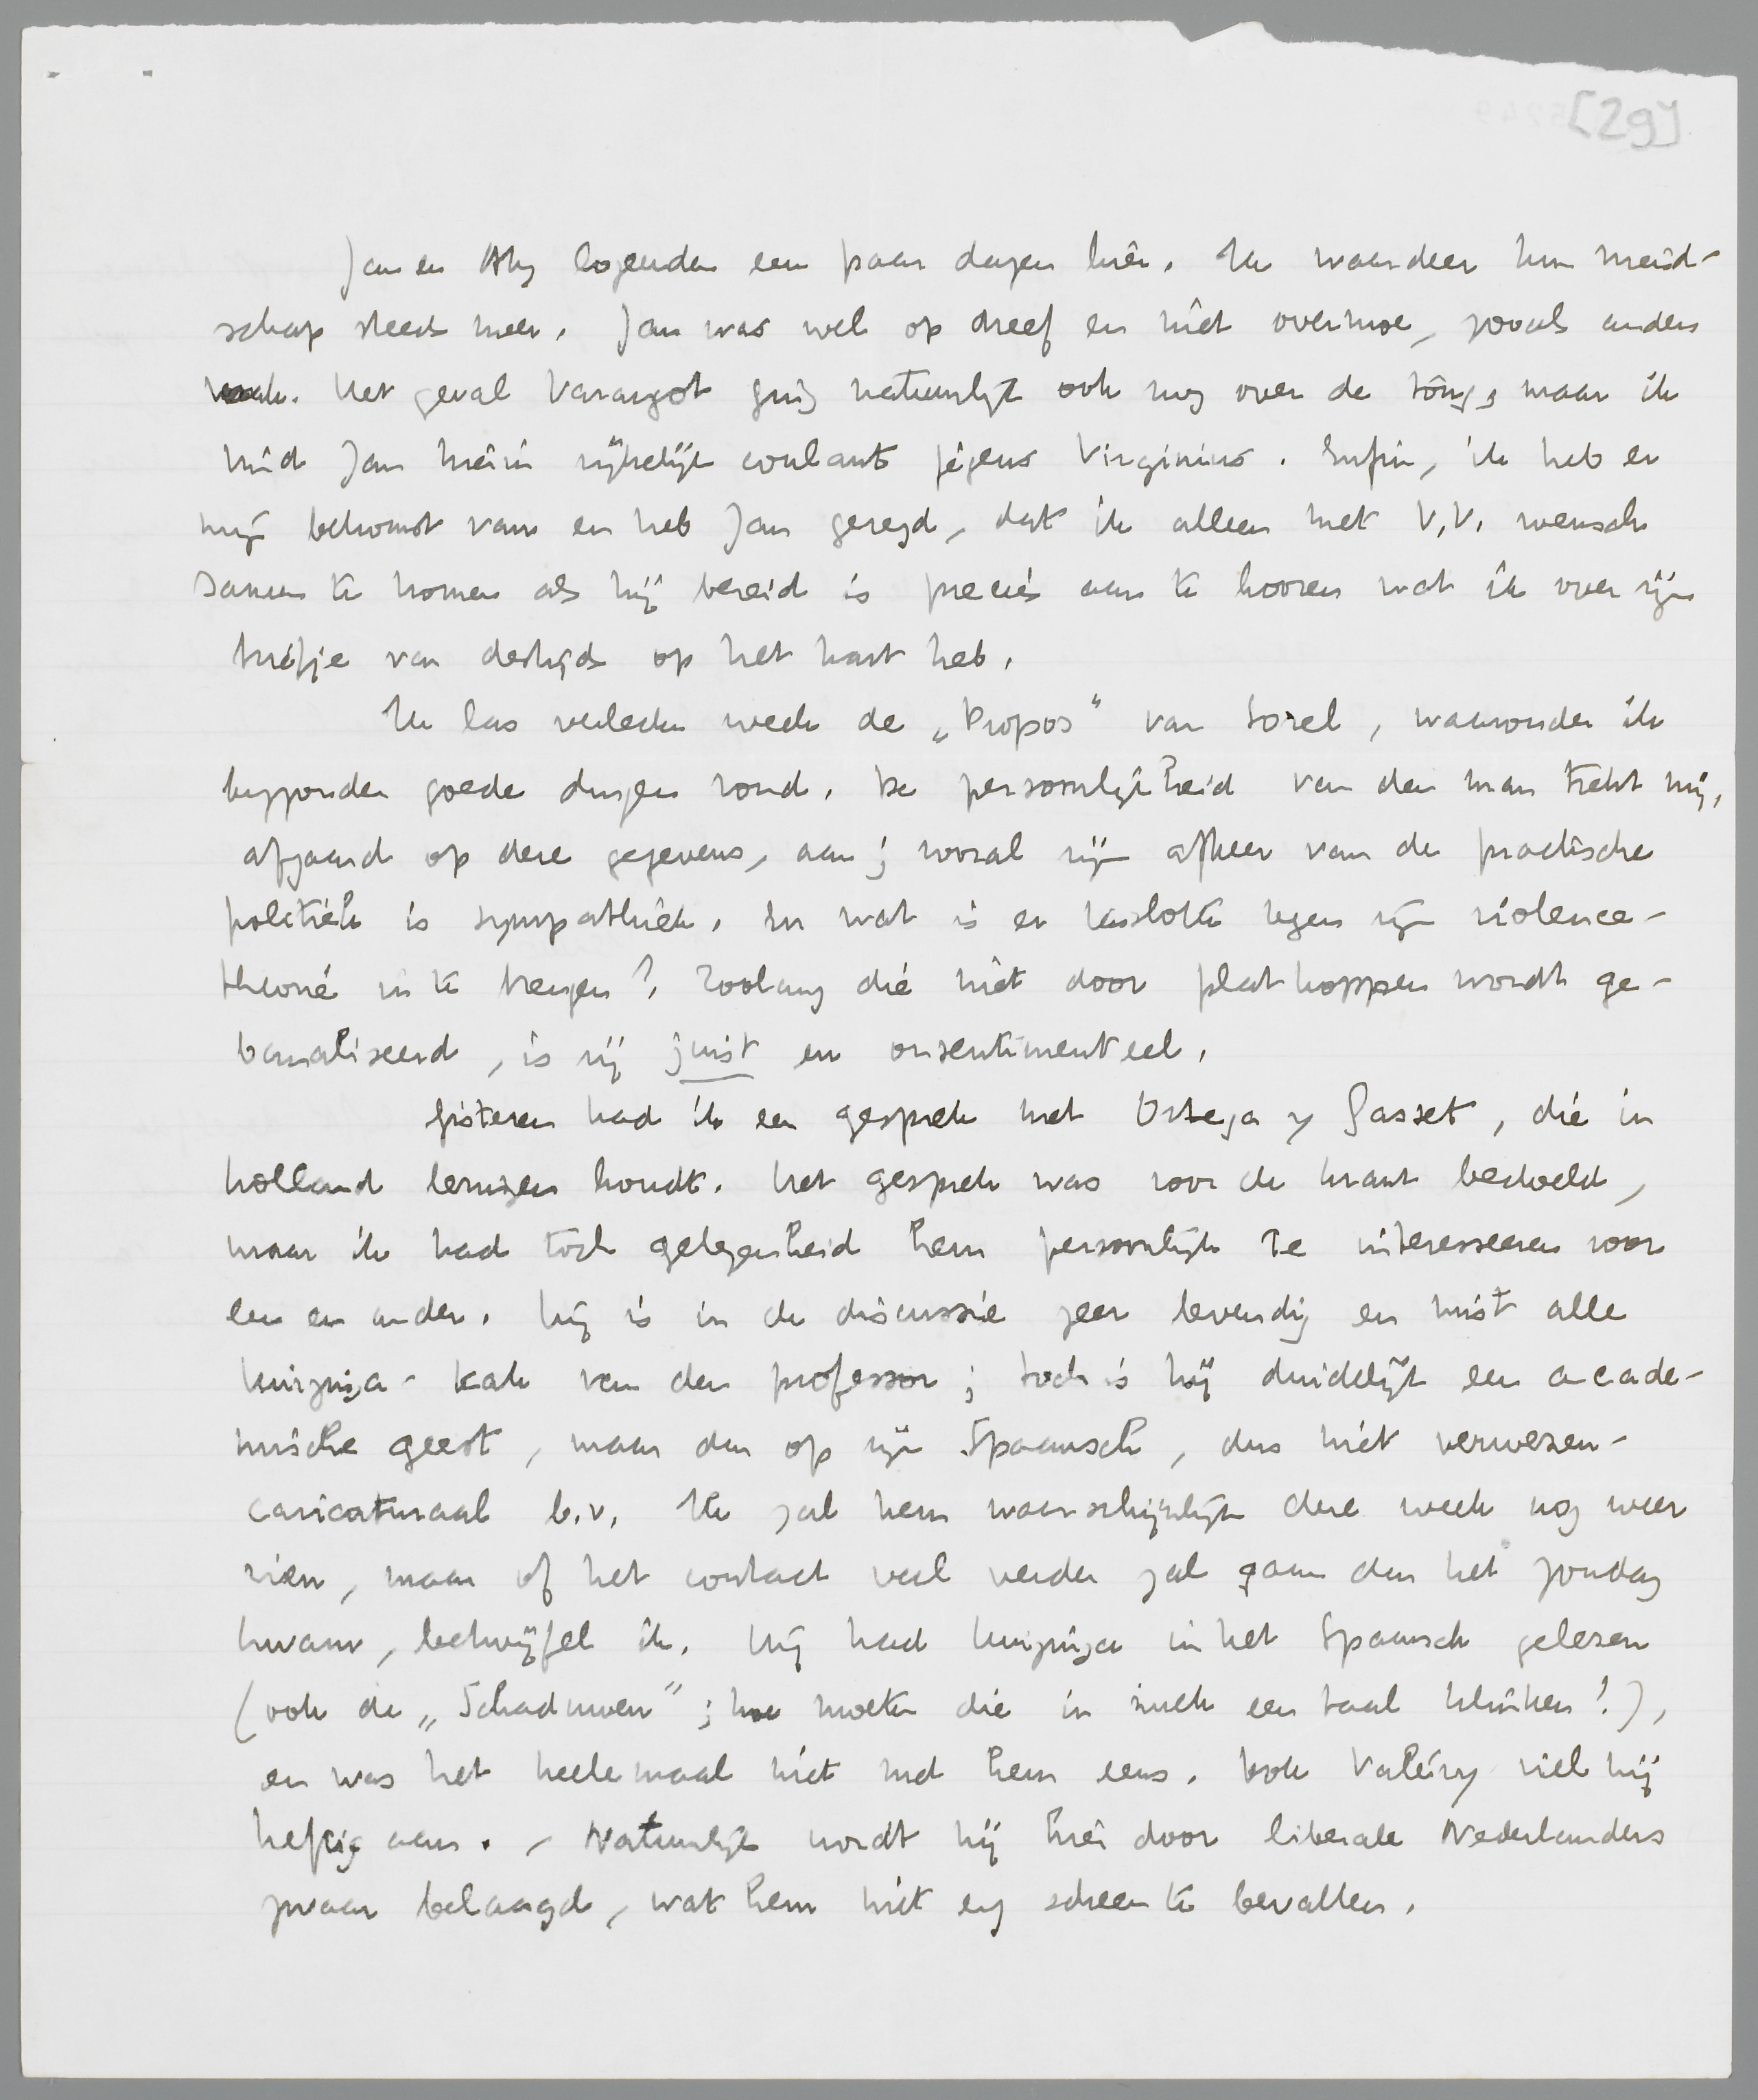 [29]
Jan en Aty logeerden een paar dagen hier. Ik waardeer hun vriend-
schap steeds meer. Jan was wel op dreef en niet overmoe, zooals anders
vaak. Het geval Varangot ging natuurlijk ook nog over de tong, maar ik
vind Jan hierin rijkelijk coulant jegens Virginius. Enfin, ik heb er
mijn bekomst van en heb Jan gezegd, dat ik alleen met V.V. wensch
samen te komen als hij bereid is precies aan te hooren wat ik over zijn
briefje van destijds op het hart heb.
Ik las verleden week de „Propos" van Sorel, waaronder ik
bijzonder goede dingen vond. De persoonlijkheid van den man trekt mij,
afgaand op deze gegevens, aan; vooral zijn afkeer van de practische
politiek is sympathiek. En wat is er tenslotte tegen zijn violence-
theorie in te brengen? Zoolang die niet door platkoppen wordt ge-
banaliseerd, is zij juist en onsentimenteel.
Gisteren had ik een gesprek met Ortega y Gasset, die in
Holland lezingen houdt. Het gesprek was voor de krant bedoeld,
maar ik had toch gelegenheid hem persoonlijk te interesseeren voor
een en ander. Hij is in de discussie zeer levendig en mist alle
Huizinga-kak van den professor; toch is hij duidelijk een acade-
mische geest, maar dan op zijn Spaansch, dus niet verwezen-
caricaturaal b.v. Ik zal hem waarschijnlijk deze week nog weer
zien, maar of het contact veel verder zal gaan dan het Zondag
kwam, betwijfel ik. Hij had Huizinga in het Spaansch gelezen
(ook de „Schaduwen"; hoe moeten die in zulk een taal klinken!),
en was het heelemaal niet met hem eens. Ook Valéry viel hij
heftig aan. - Natuurlijk wordt hij hier door liberale Nederlanders
zwaar belaagd, wat hem niet erg scheen te bevallen.